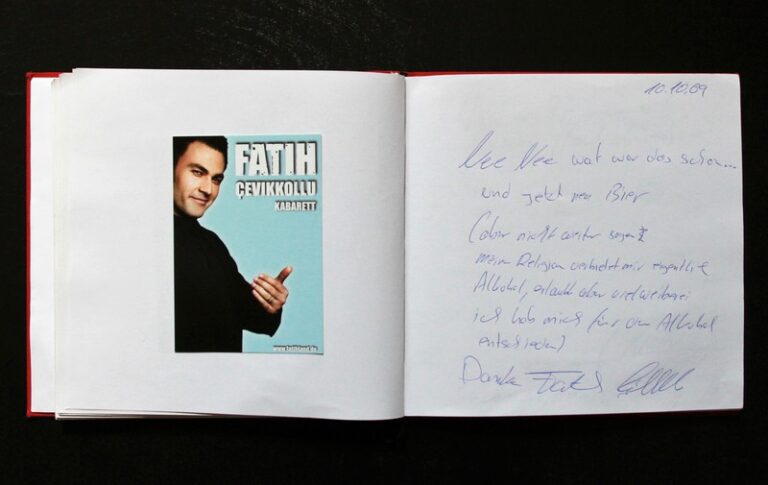 FATIH
ÇEVIKKOLLU
KABARETT
www.fatihland.de
10.10.09
Nee Nee wat war das schön...
und jetzt nen Bier
(aber nicht weiter sagen!
meine Religion verbietet mir eigentlich
Alkohol, erlaubt aber vielweiberei
ich hab mich für den Alkohol
entschieden)
Danke Fatih